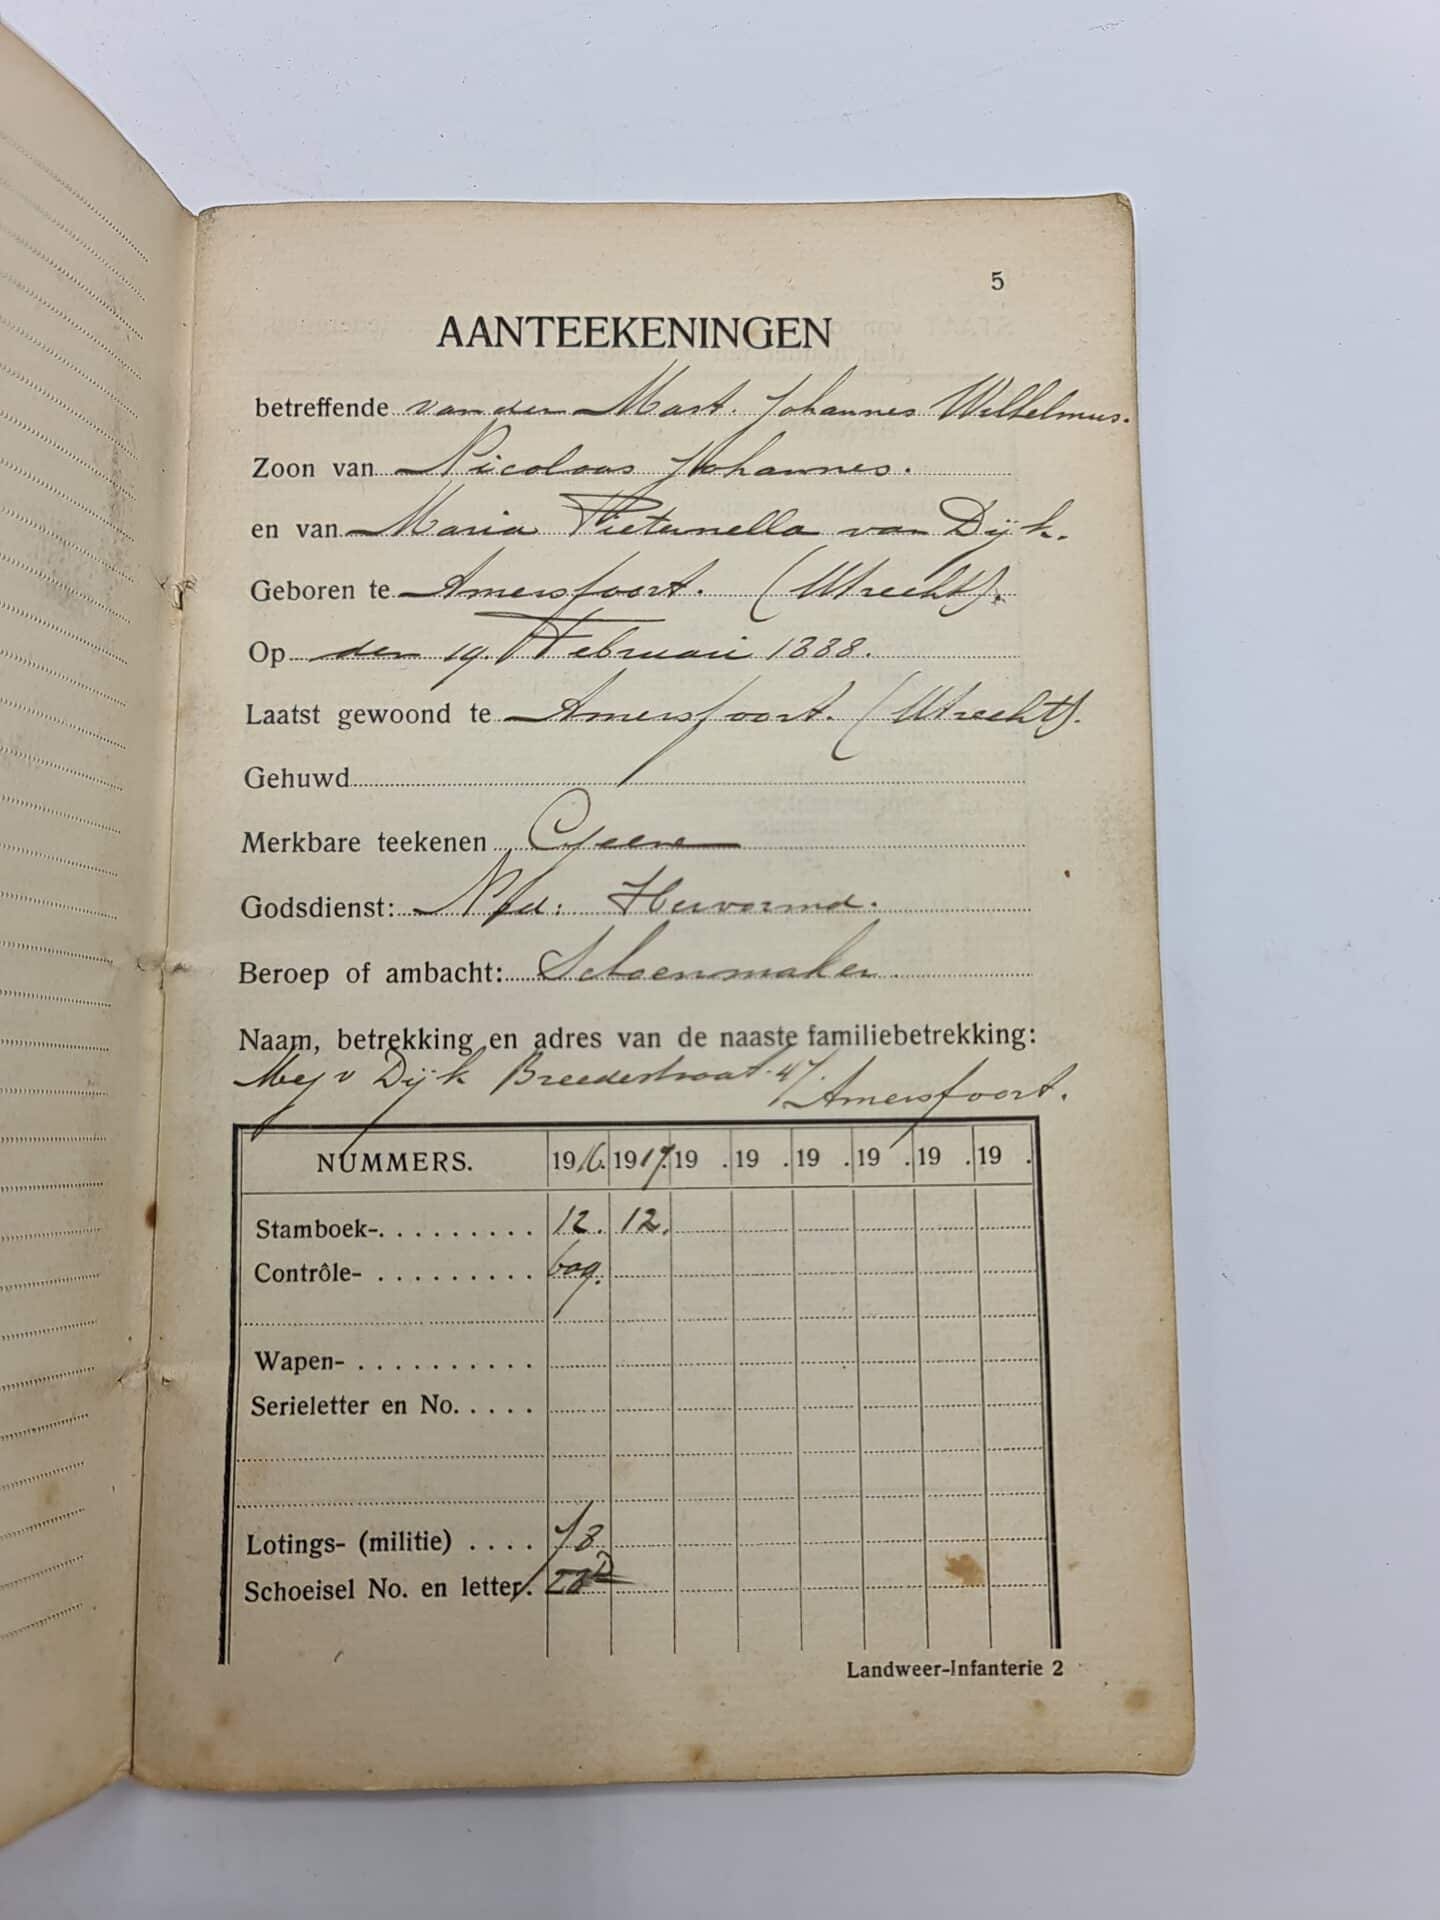 5
AANTEEKENINGEN
betreffende van der Mast. Johannes Wilhelmus.
Zoon van Nicolaas Johannes.
en van Maria Pieternella van Dijk.
Geboren te Amersfoort. (Utrecht).
Op den 19. Februari 1888.
Laatst gewoond te Amersfoort. (Utrecht).
Gehuwd
Merkbare teekenen Geene
Godsdienst: Nsd: Hervormd.
Beroep of ambacht: Schoenmaker
Naam, betrekking en adres van de naaste familiebetrekking:
Mej v Dijk Breedestraat 47.
Amersfoort.
NUMMERS. 1916. 1917. 19 . 19 . 19 . 19 . 19 . 19 .
Stamboek- . . . . . . . . . 12. 12.
Contrôle- . . . . . . . . .
Wapen- . . . . . . . . . .
Serieletter en No. . . . .
Lotings- (militie) . . . . 78
Schoeisel No. en letter. 28D
Landweer-Infanterie 2